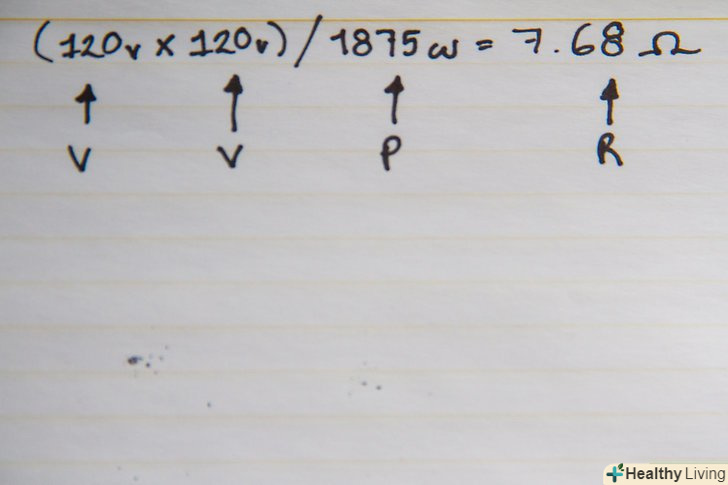 (120v x 120v) / 1875 w = 7.68 Ω
V V P R
Healthy Living